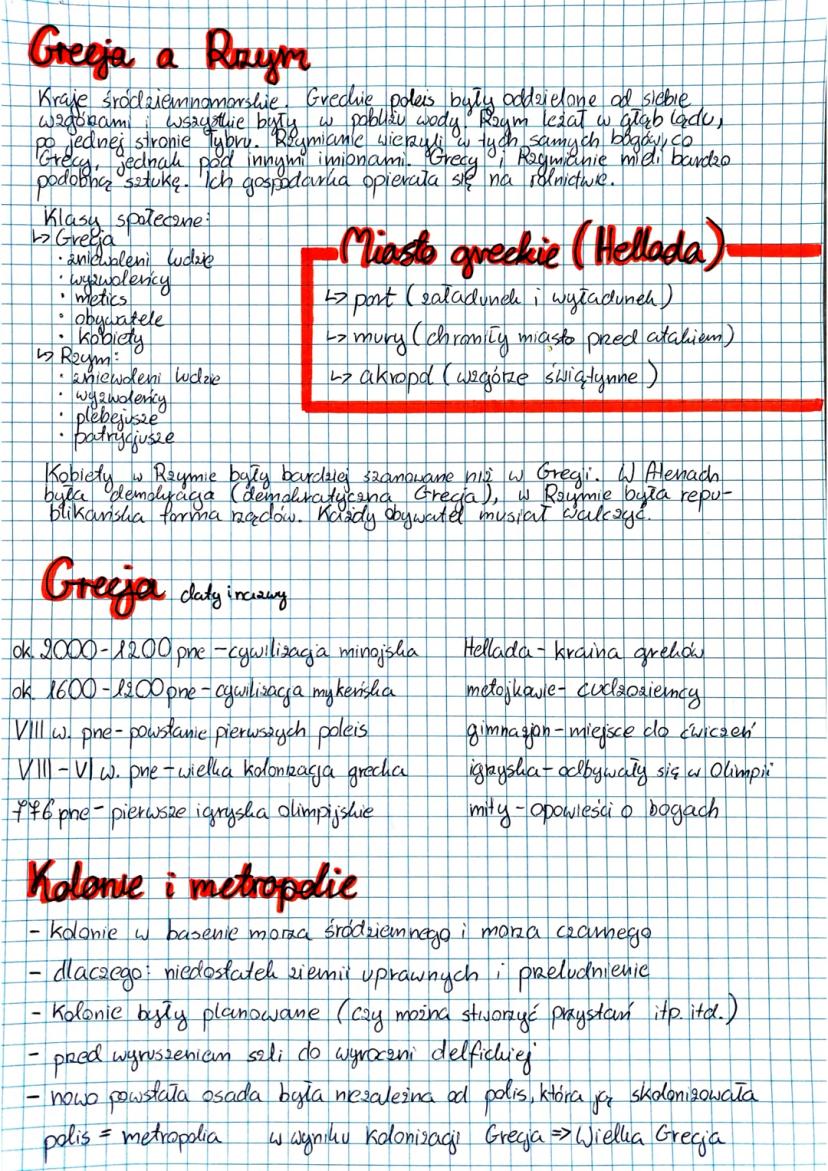 Grecja a Rzym
Kraje śródziemnomorskie. Greckie poleis były oddzielone od siebie
wzgórzami i wszystkie były w pobliżu wody. Rzym leżał w głąb lądu,
po jednej stronie Tybru. Rzymianie wierzyli w tych samych bogów, co
Grecy, jednak pod innymi imionami. Grecy i Rzymianie mieli bardzo
podobną sztukę. Ich gospodarka opierała się na rolnictwie.
Klasy społeczne:
↳ Grecja
· zniewoleni ludzie
· wyzwoleńcy
· metics
· obywatele
· kobiety
↳ Rzym:
· zniewoleni ludzie
· wyzwoleńcy
· plebejusze
· patrycjusze
Miasto greckie (Hellada)
↳ port (załadunek i wyładunek)
↳ mury (chroniły miasto przed atakiem)
↳ akropol (wzgórze świątynne)
Kobiety w Rzymie były bardziej szanowane niż w Grecji. W Atenach
była demokracja (demokratyczna Grecja), w Rzymie była repu-
blikańska forma rządów. Każdy obywatel musiał walczyć.
Grecja daty i nazwy
ok. 2000-1200 pne - cywilizacja minojska
ok. 1600-1200 pne - cywilizacja mykeńska
VIII w. pne - powstanie pierwszych poleis
VIII - VI w. pne - wielka kolonizacja grecka
776 pne - pierwsze igryska olimpijskie
Hellada - kraina greków
metojkowie - cudzoziemcy
gimnazjon - miejsce do ćwiczeń
igrzyska - odbywały się w Olimpii
mity - opowieści o bogach
Kolonie i metropolie
- kolonie w basenie morza śródziemnego i morza czarnego
- dlaczego: niedostatek ziemii uprawnych i przeludnienie
- Kolonie były planowane (czy można stworzyć przystań itp. itd.)
- przed wyruszeniem szli do wyroczni delfickiej
- nowo powstała osada była niezależna od polis, która ją skolonizowała
polis = metropolia w wyniku kolonizacji Grecja => Wielka Grecja